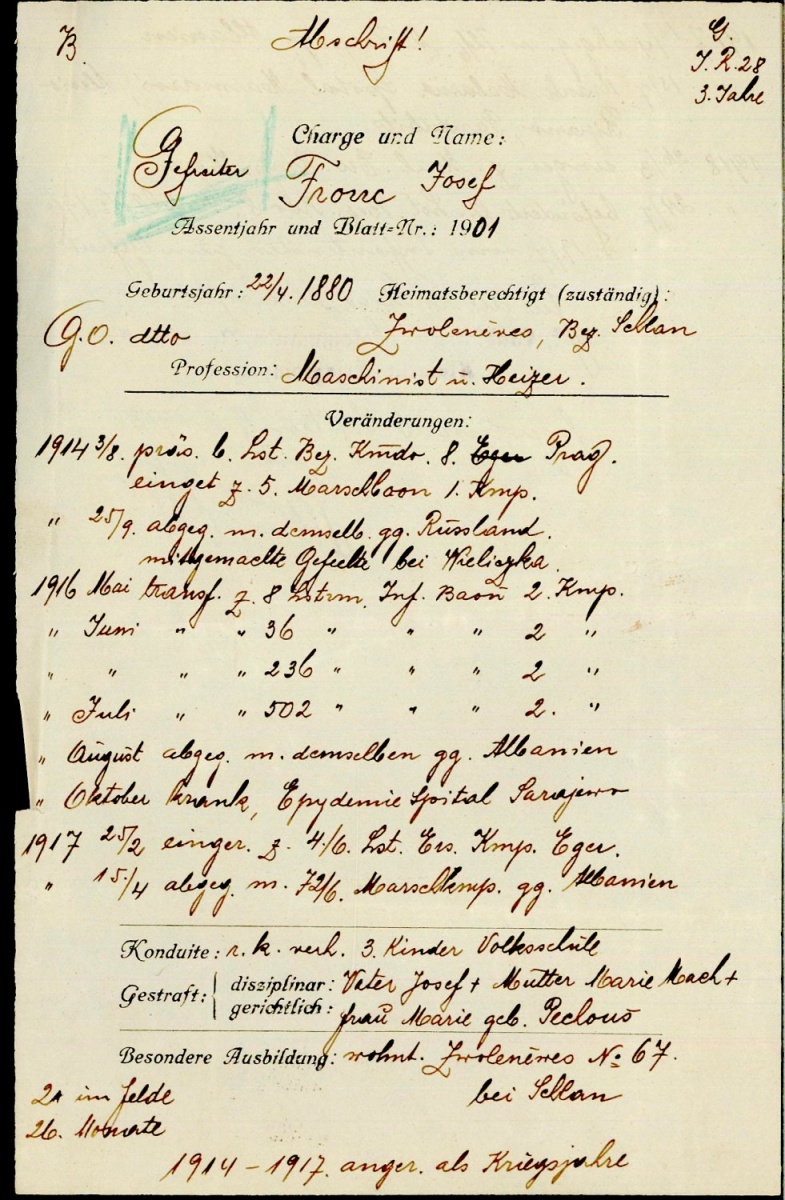 B. Abschrift! G.
I.R. 28
3. Jahre
Charge und Name:
Gefreiter Josef
Assentjahr und Blatt-Nr.: 1901
Geburtsjahr: 22/4. 1880 Heimatsberechtigt (zuständig):
G.O. dtto Zwolenèves, Bez. Schlan
Profession: Maschinist u. Heizer.
Veränderungen:
1914 3/8. präs. b. Lst. Bez. Kmdo. 8. Eger Prag.
einget z. 5. Marschbaon 1. Kmp.
" 25/9. abgeg. m. demselb. gg. Russland.
mitgemachte Gefechte bei Wieliczka.
1916 Mai transf. z. 8 Lstrm. Inf. Baon 2. Kmp.
" Juni " " 36 " " " 2 "
" " " " 236 " " " 2 "
" Juli " " 502 " " " 2. "
" August abgeg. m. demselben gg. Albanien
" Oktober krank, Epydemie Spital Sarajewo
1917 25/2 einger. z. 4/6. Lst. Ers. Kmp. Eger.
" 15./4 abgeg. m. 72/6. Marschkmp. gg. Albanien
Konduite: r. k. verh. 3. Kinder Volksschule
Gestraft: disziplinar: Vater Josef + Mutter Marie Mach +
gerichtlich: Frau Marie geb.
Besondere Ausbildung: wohnt. Zwolenèwes No 67.
im Felde bei Schlan
26. Monate
1914 - 1917. anger. als Kriegsjahre